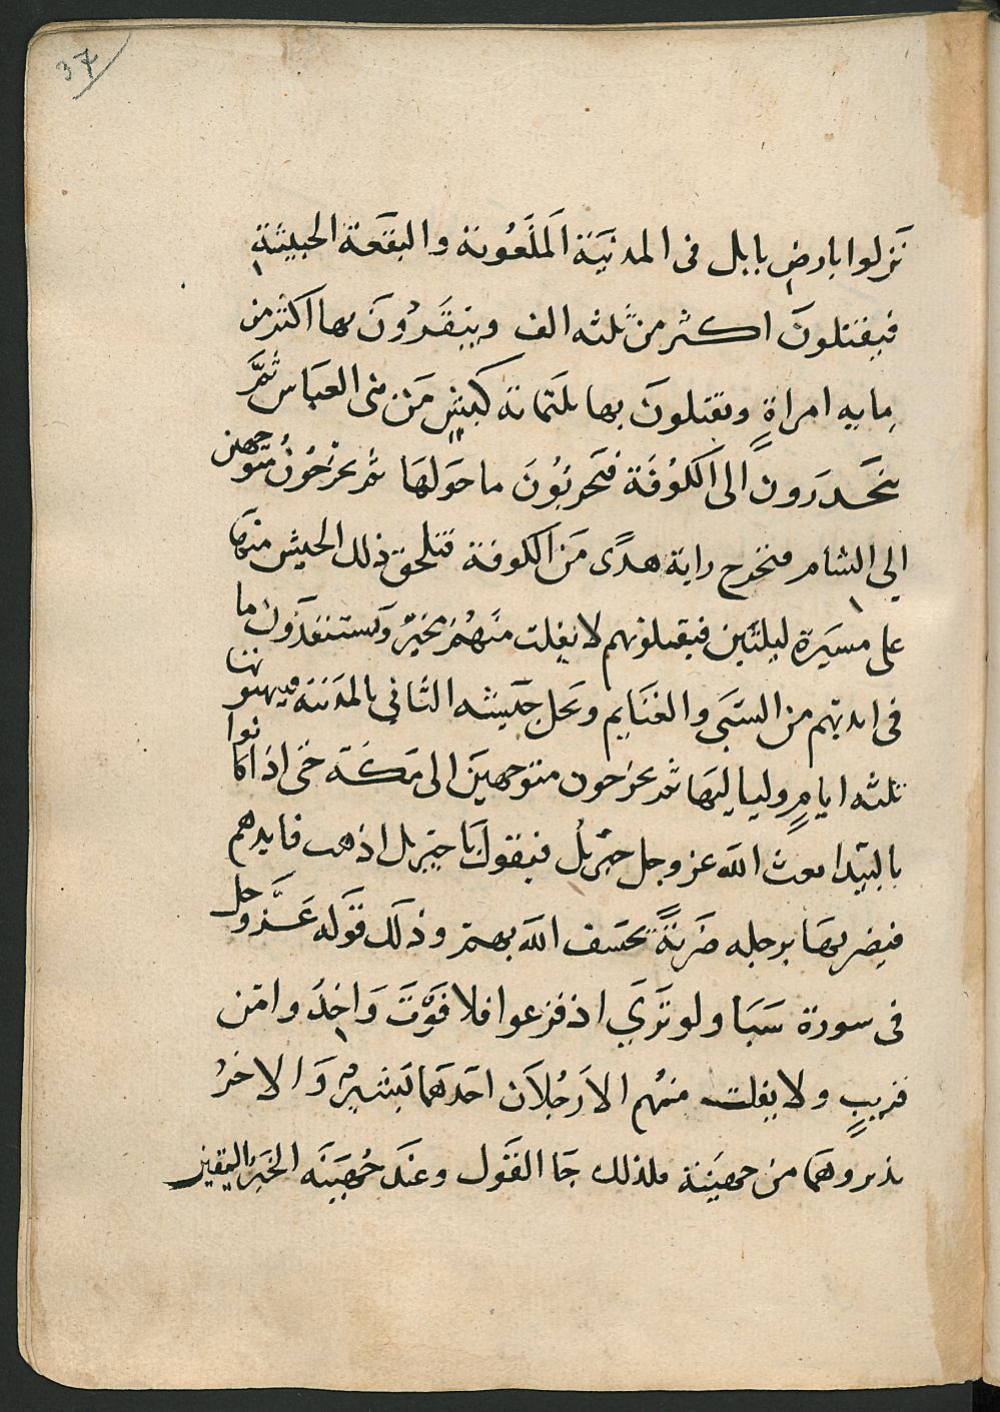 37
نَزلوا بارضِ بابل فى المدنيَة المَلَعُونة والبقَعَة الخبيثة
فيقتلونَ اكثر من ثلثه الف ويبقَرُونَ بها اكثر من
مايه امراةٍ ويقتلونَ بها ثلثماىة كبشٍ مَن بنى العبَاس ثمَّ
ينحَدرون الى الكُوفَة فيَحربُونَ ما حَولهَا ثم يخرَجُونُ متوجهين
الي الشام فتخرج راية هدًى مَن الكوفة فتلحق ذلك الجيش منهَا
على مسيَرة ليلتَين فيقتلونهم لا يفلت منَهُمْ مخبرٌ ويَستنقذَون ما
فى ايديهم من السَبَى والغنَايم ويَحل جَيشه الثانى بالمدَينة فينهبونها
ثلثه ايامٍ ولياليَها ثم يخرجون متوَجهينَ الى مَكَة حَتى اذا كانوا
بالبَيدا بعث الله عز وجل جبَريلُ فيَقولُ يَا جبَريل اذهب فابدهم
فيضربهَا برجله ضَربَةً يخسَف الله بهم وذلَك قوَله عَزَّ وجل
فى سورة سَبَا ولو تَرَي اذ فزعوا فلا فَوْتَ وَاخذُوا من
قريبٍ ولا يفلت منهُم الا رَجُلاَن احَدهَما بَشيرٌ وَالاخرُ
نذير وهَما من جهَينة فلذلك جَا القَول وعندَ جُهَينَه الخبَر اليقين